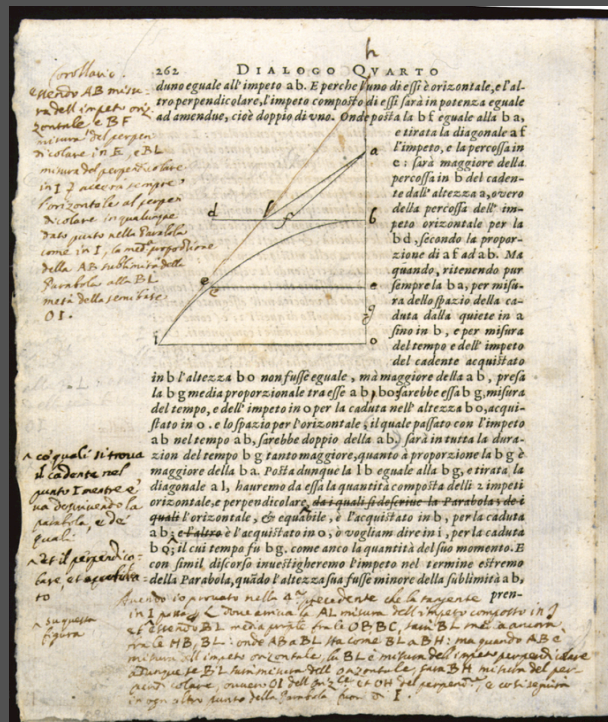 h
262 DIALOGO QVARTO
duno eguale all' impeto ab. E perche l'uno di essi è orizontale, e l'al-
tro perpendicolare, l'impeto composto di essi sarà in potenza eguale
ad amendue, cioè doppio di vno. Onde posta la bf eguale alla ba,
e tirata la diagonale af
l'impeto, e la percossa in
e: sarà maggiore della
percossa in b del caden-
te dall' altezza a, overo
della percossa dell' im-
peto orizontale per la
bd, secondo la propor-
zione di af ad ab. Ma
quando, ritenendo pur
sempre la ba, per misu-
ra dello spazio della ca-
duta dalla quiete in a
sino in b, e per misura
del tempo e dell' impeto
del cadente acquistato
in b l'altezza bo non fusse eguale, mà maggiore della ab, presa
la bg media proporzionale tra esse ab, bo: sarebbe essa bg, misura
del tempo, e dell' impeto in o per la caduta nell' altezza bo, acqui-
stato in o. e lo spazio per l'orizontale, il quale passato con l'impeto
ab nel tempo ab, sarebbe doppio della ab, sarà in tutta la dura-
zion del tempo bg tanto maggiore, quanto à proporzione la bg è
maggiore della ba. Posta dunque la lb eguale alla bg, e tirata, la
diagonale al, hauremo da essa la quantità composta delli 2 impeti
orizontale, e perpendicolare, da i quali si descriue la Parabola; de i
quali l'orizontale, & equabile, è l'acquistato in b, per la caduta
ab; e l'altro è l'acquistato in o, ò vogliam dire in i, per la caduta
bo; il cui tempo fù bg. come anco la quantità del suo momento. E
con simil discorso inuestigheremo l'impeto nel termine estremo
della Parabola, quãdo l'altezza sua fusse minore della sublimità ab,
pren-
a
d f b
e e
g
i o
Corollario.
essendo AB misu-
ra dell' impeto oriz-
zontale e BF
misura del perpen-
dicolare in E, e BL
misura del perpendicolare
in I
come in I, la
della AB sublimità della
Parabola alla BL
metà della semibase
OI.
co' quali si trova
il cadente nel
punto I mentre è
va descrivendo la
parabola, e de'
quali
et il perpendico-
lare,
to
a questa
figura
Avendo io provato nella precedente che la tangente
in I
et essendo BL media
tra le HB, BL: onde AB a BL sta come BL a BH: ma quando AB è
misura dell' impeto orizontale, la BL è misura dell' impeto perpendicolare
adunque se BL sarà misura dell' orizontale, sarà BH misura del per-
pendicolare, ouuero OI dell' et OH del e così seguirà
in ogni altro punto della Parabola fuor di I.